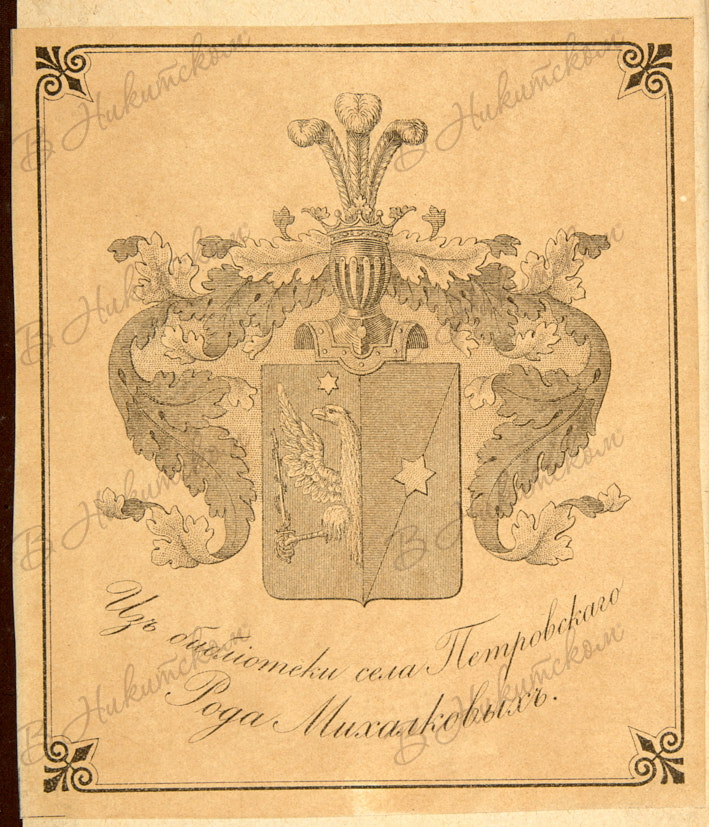 Изъ библіотеки села Петровскаго
Рода Михалковыхъ.
В Никитском
В Никитском
В Никитском
В Никитском
В Никитском
В Никитском
В Никитском
В Никитском